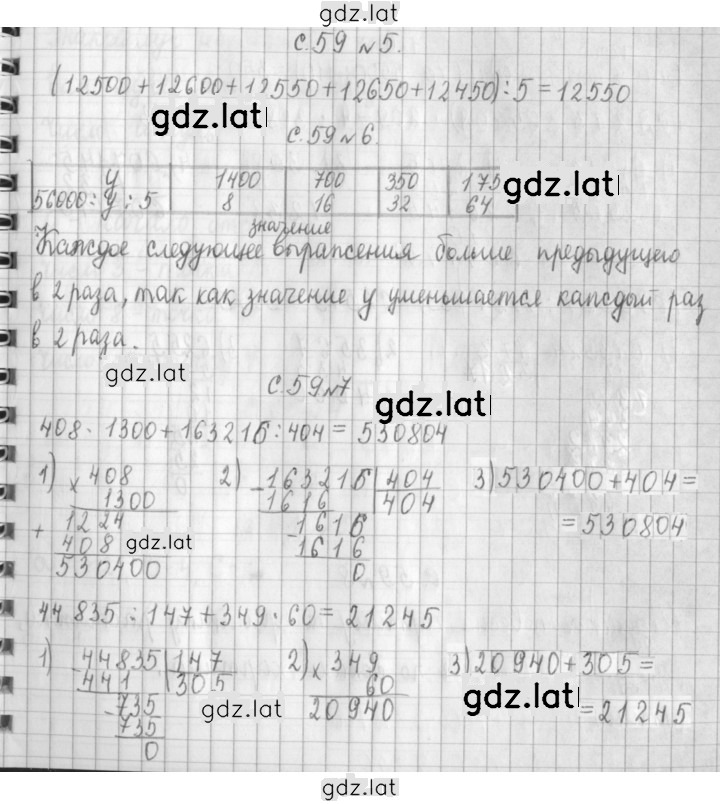 gdz.lat
с.59 №5.
(12500+12600+12550+12650+12450):5=12550
gdz.lat
с.59 №6.
у 1400 700 350 175
gdz.lat
56000:у:5 8 16 32 64
значение
Каждое следующее выражения больше предыдущего
в 2 раза, так как значение у уменьшается каждый раз
в 2 раза.
gdz.lat
с.59 №7
gdz.lat
408·1300+163216:404=530804
1) 408 2) 163216 404 3) 530400+404=
× 1300 - 1616 404 =530804
+ 1224 - 1616
408 1616
gdz.lat
530400 0
44835:147+349·60=21245
1) 44835 147 2) × 349 3) 20940+305=
- 441 305 60
- 735 20940 =21245
gdz.lat
gdz.lat
735
0
gdz.lat